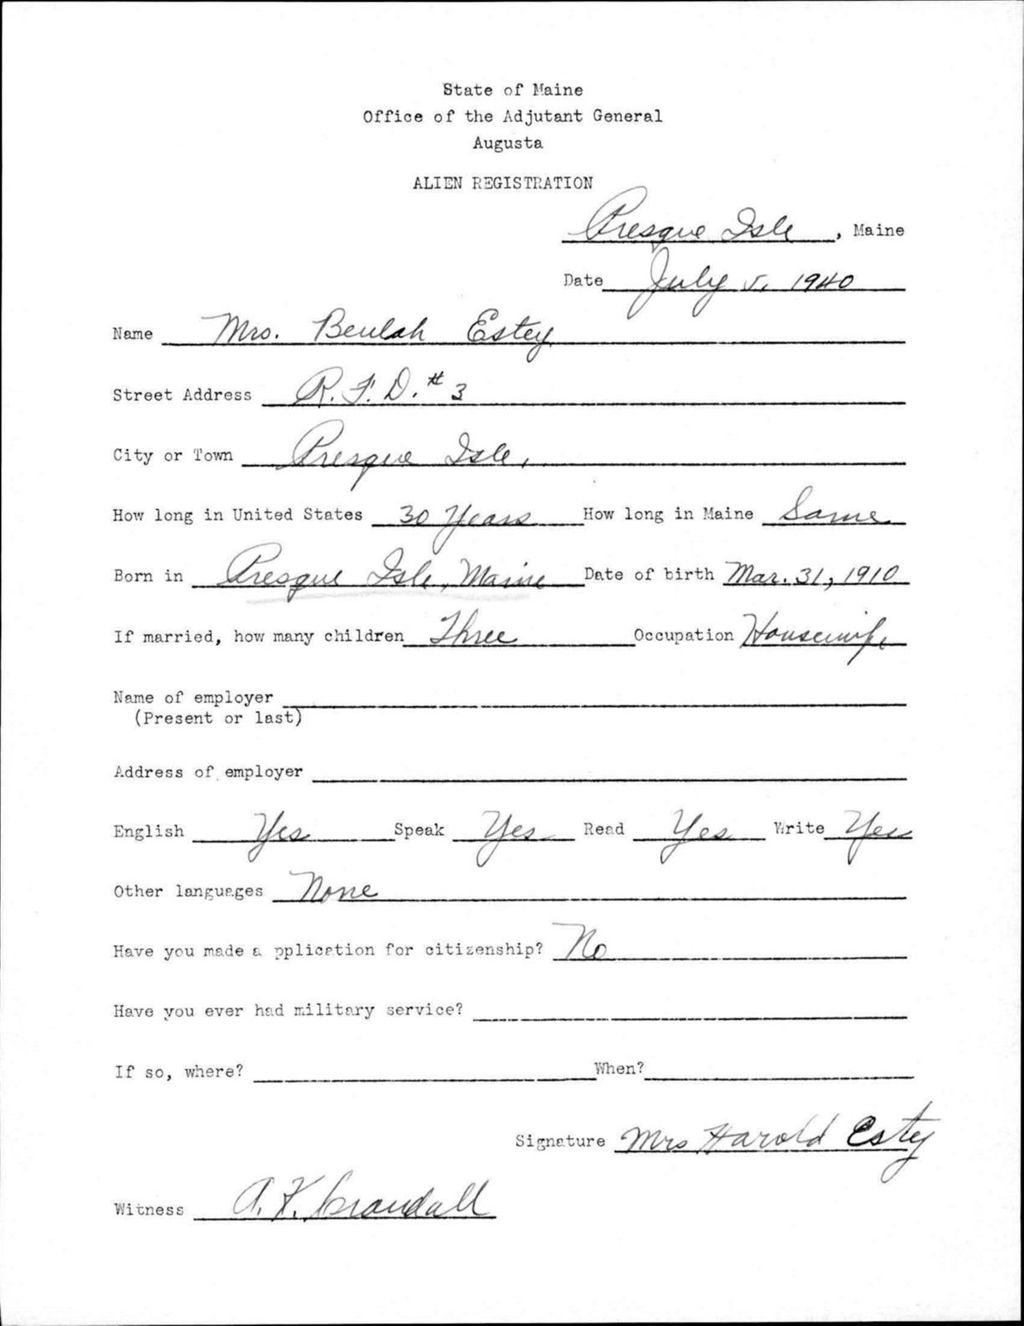 State of Maine
Office of the Adjutant General
Augusta
ALIEN REGISTRATION
Presque Isle, Maine
Date July 5, 1940
Name Mrs. Beulah Estey
Street Address R.F.D. # 3
City or Town Presque Isle,
How long in United States 30 Years How long in Maine Same
Born in Presque Isle, Maine Date of birth Mar. 31, 1910
If married, how many children Three Occupation Housewife
Name of employer
(Present or last)
Address of employer
English Yes Speak Yes Read Yes Write Yes
Other languages None
Have you made a pplication for citizenship? No
Have you ever had military service?
If so, where? When?
Signature Mrs Harold Estey
Witness A. K. Crandall